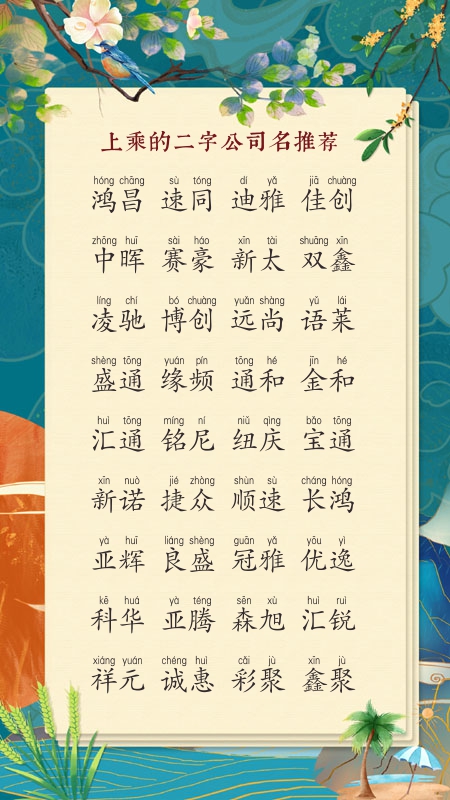 上乘的二字公司名推荐
hóng chāng sù tóng dí yǎ jiā chuàng
鸿昌 速同 迪雅 佳创
zhōng huī sài háo xīn tài shuāng xīn
中晖 赛豪 新太 双鑫
líng chí bó chuàng yuǎn shàng yǔ lái
凌驰 博创 远尚 语莱
shèng tōng yuán pín tōng hé jīn hé
盛通 缘频 通和 金和
huì tōng míng ní niǔ qìng bǎo tōng
汇通 铭尼 纽庆 宝通
xīn nuò jié zhòng shùn sù cháng hóng
新诺 捷众 顺速 长鸿
yà huī liáng shèng guān yǎ yōu yì
亚辉 良盛 冠雅 优逸
kē huá yà téng sēn xù huì ruì
科华 亚腾 森旭 汇锐
xiáng yuán chéng huì cǎi jù xīn jù
祥元 诚惠 彩聚 鑫聚